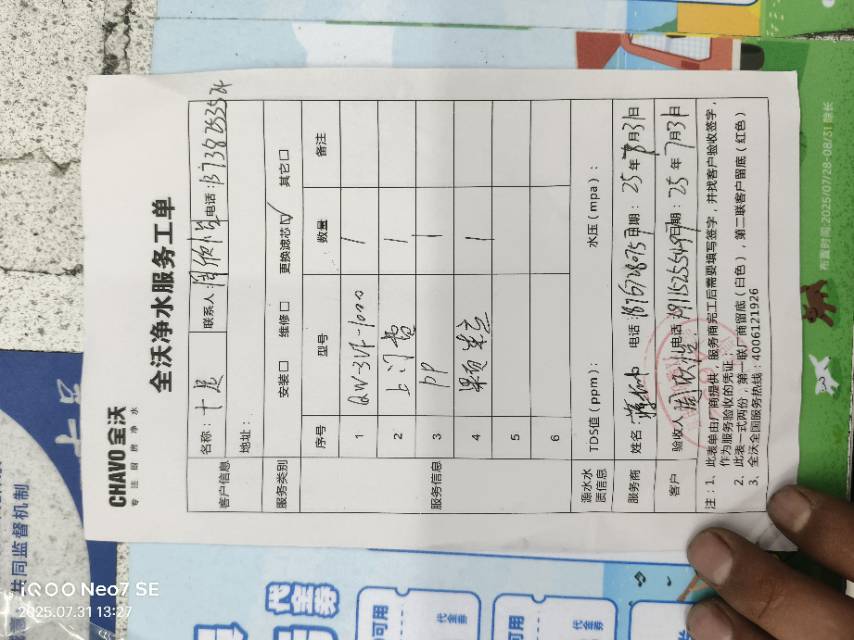 CHAVO 全沃
专注厨房净水
全沃净水服务工单
客户信息 名称： 联系人： 电话：
地址：
服务类别 安装□ 维修□ 更换滤芯☑ 其它□
服务信息 序号 型号 数量 备注
1 QW-3UF-1000 1
2 上门费 1
3 PP 1
4 1
5
6
源水水质信息 TDS值（ppm）： 水压（mpa）：
服务商 姓名： 电话：1876728075 日期：25年 月31日
客户 验收人： 电话： 日期：25年7月31日
注：1、此表单由厂商提供，服务商完工后需要填写签字，并找客户验收签字，
作为服务验收的凭证；
2、此表一式两份，第一联厂商留底（白色），第二联客户留底（红色）
3、全沃全国服务热线：4006121926
布置时间：2025/07/28-08/31 除长
共同监督机制
代金券
可用
代金券
可用
代金券
iQOO Neo7 SE
2025.07.31 13:27